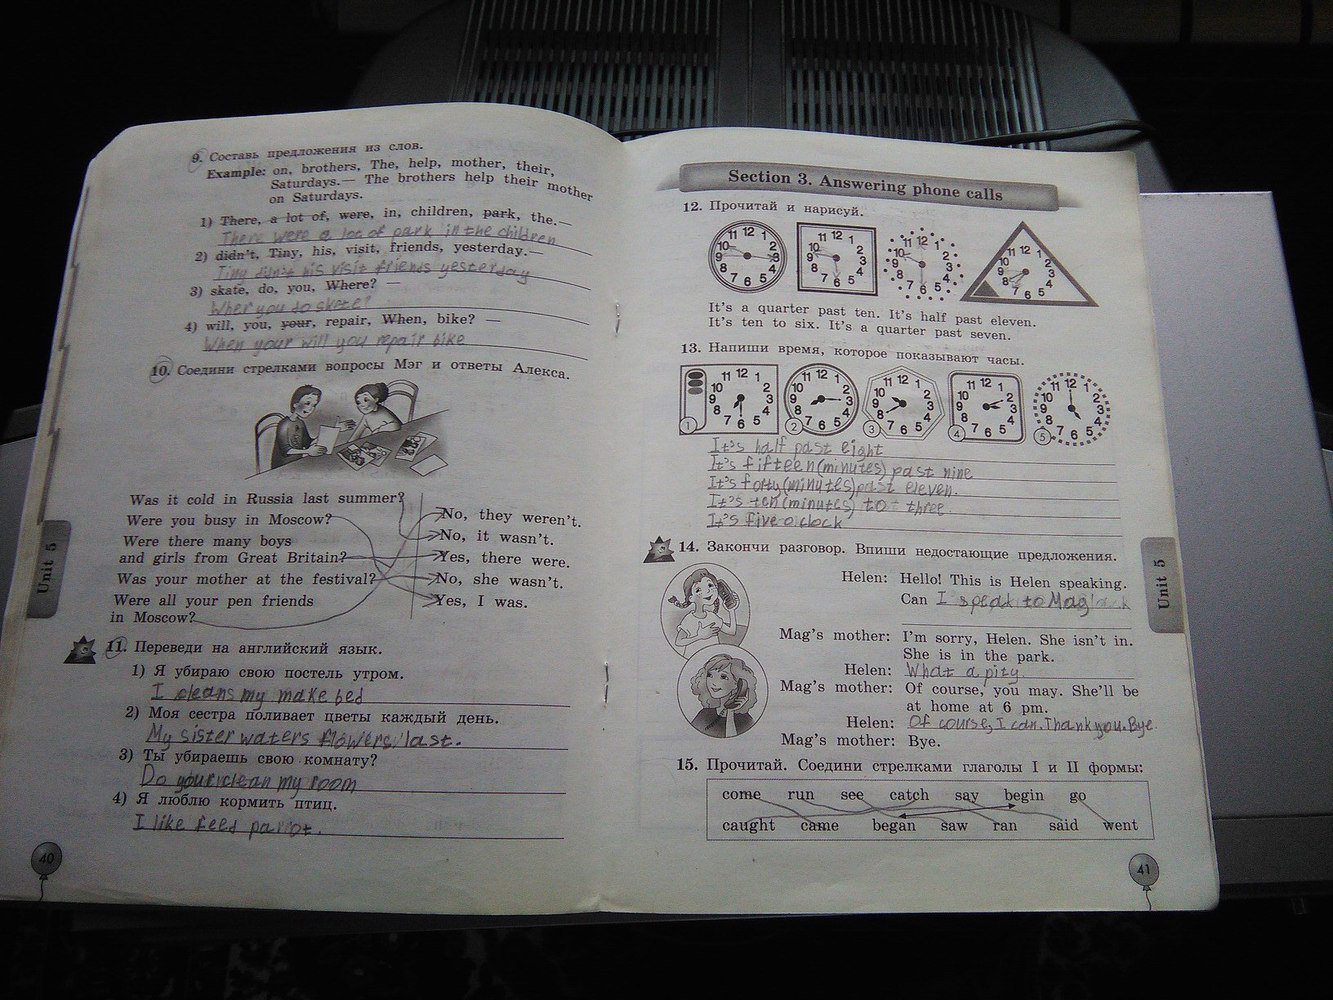 9. Составь предложения из слов.
Example: on, brothers, The, help, mother, their,
Saturdays.— The brothers help their mother
on Saturdays.
1) There, a lot of, were, in, children, park, the.—
There were a lot of park in the children
2) didn't, Tiny, his, visit, friends, yesterday.—
Tiny didn't his visit friends yesterday
3) skate, do, you, Where? —
Wher you to skate?
4) will, you, your, repair, When, bike? —
When your will you repair bike
10. Соедини стрелками вопросы Мэг и ответы Алекса.
Was it cold in Russia last summer?
Were you busy in Moscow?
Were there many boys
and girls from Great Britain?
Was your mother at the festival?
Were all your pen friends
in Moscow?
No, they weren't.
No, it wasn't.
Yes, there were.
No, she wasn't.
Yes, I was.
11. Переведи на английский язык.
1) Я убираю свою постель утром.
I cleans my make bed
2) Моя сестра поливает цветы каждый день.
My sister waters flowers last.
3) Ты убираешь свою комнату?
Do your clean my room
4) Я люблю кормить птиц.
I like feed parrot.
Unit 5
40
Section 3. Answering phone calls
12. Прочитай и нарисуй.
11 12 1
10 2
9 3
8 4
7 6 5
11 12 1
10 2
9 3
8 4
7 6 5
11 12 1
10 2
9 3
8 4
7 6 5
11 12 1
10 2
9 3
8 4
7 6 5
It's a quarter past ten. It's half past eleven.
It's ten to six. It's a quarter past seven.
13. Напиши время, которое показывают часы.
11 12 1
10 2
9 3
8 4
7 6 5
1
11 12 1
10 2
9 3
8 4
7 6 5
2
11 12 1
10 2
9 3
8 4
7 6 5
3
11 12 1
10 2
9 3
8 4
7 6 5
4
11 12 1
10 2
9 3
8 4
7 6 5
5
It's half past eight
It's fifteen(minutes) past nine
It's forty(minutes)past eleven.
It's ten(minutes) to three
It's five o clock
14. Закончи разговор. Впиши недостающие предложения.
Helen: Hello! This is Helen speaking.
Can I speak to Mag
Mag's mother: I'm sorry, Helen. She isn't in.
She is in the park.
Helen: What a pity.
Mag's mother: Of course, you may. She'll be
at home at 6 pm.
Helen: Of course, I can. Thank you. Bye.
Mag's mother: Bye.
15. Прочитай. Соедини стрелками глаголы I и II формы:
come run see catch say begin go
caught came began saw ran said went
Unit 5
41